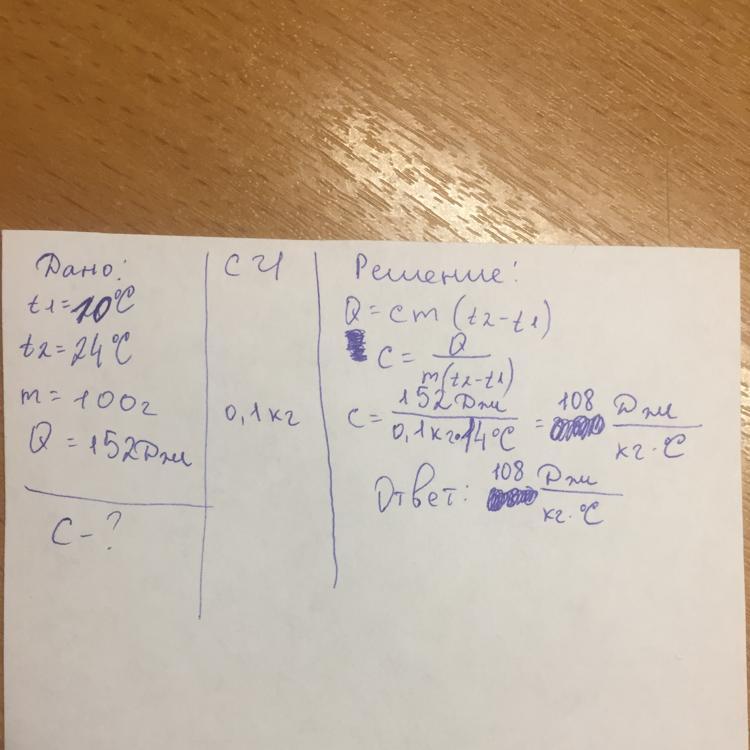 Дано:
t1=10°C
t2=24°C
m=100г
Q=152Дж
C-?
СИ
0,1кг
Решение:
Q=cm(t2-t1)
C= Q
m(t2-t1)
C= 152Дж = 108 Дж
0,1кг·14°C кг·°C
Ответ: 108 Дж
кг·°C